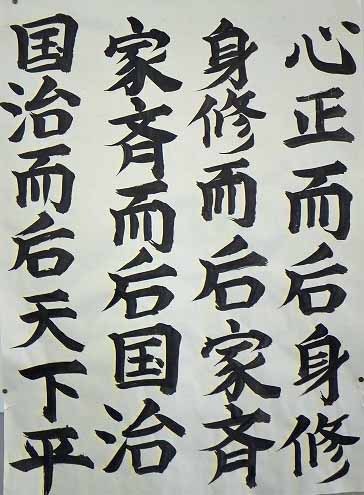 心正而后身修
身修而后家斉
家斉而后国治
国治而后天下平